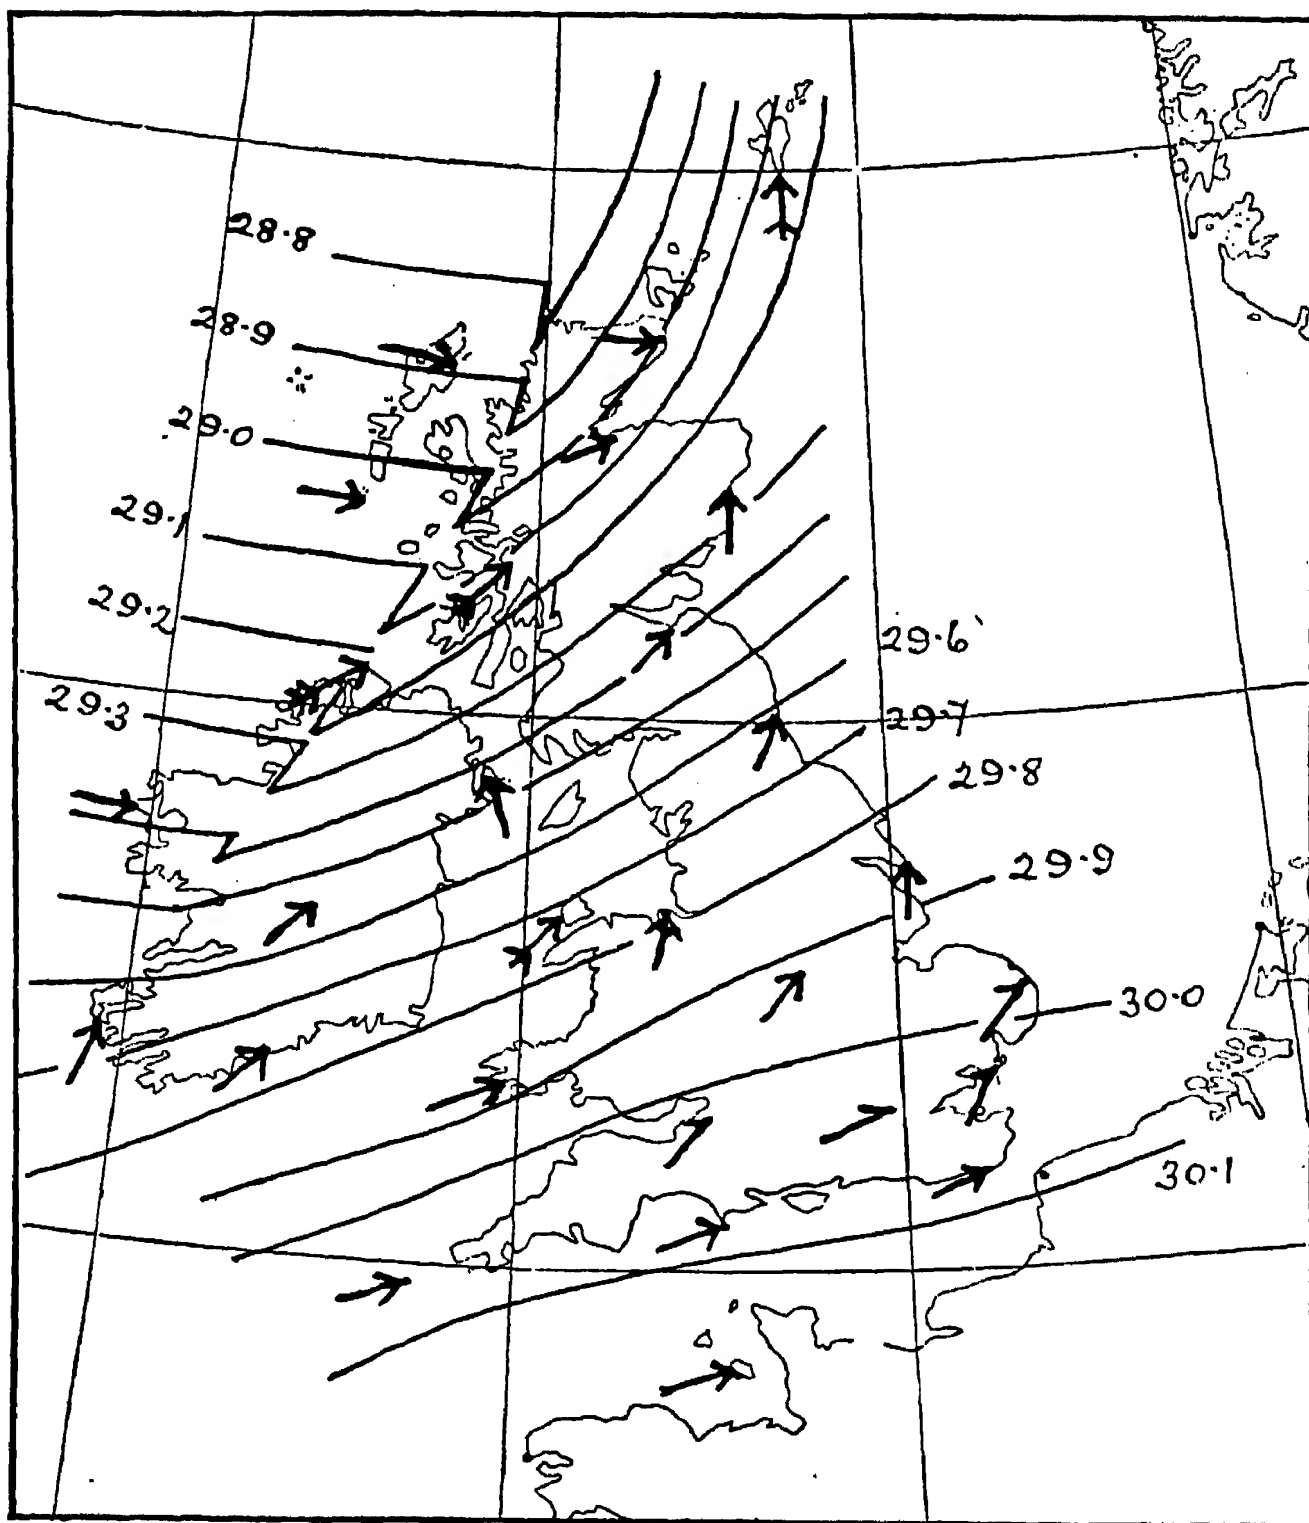 28·8
28·9
29·0
29·1
29·2
29·3
29·6
29·7
29·8
29·9
30·0
30·1